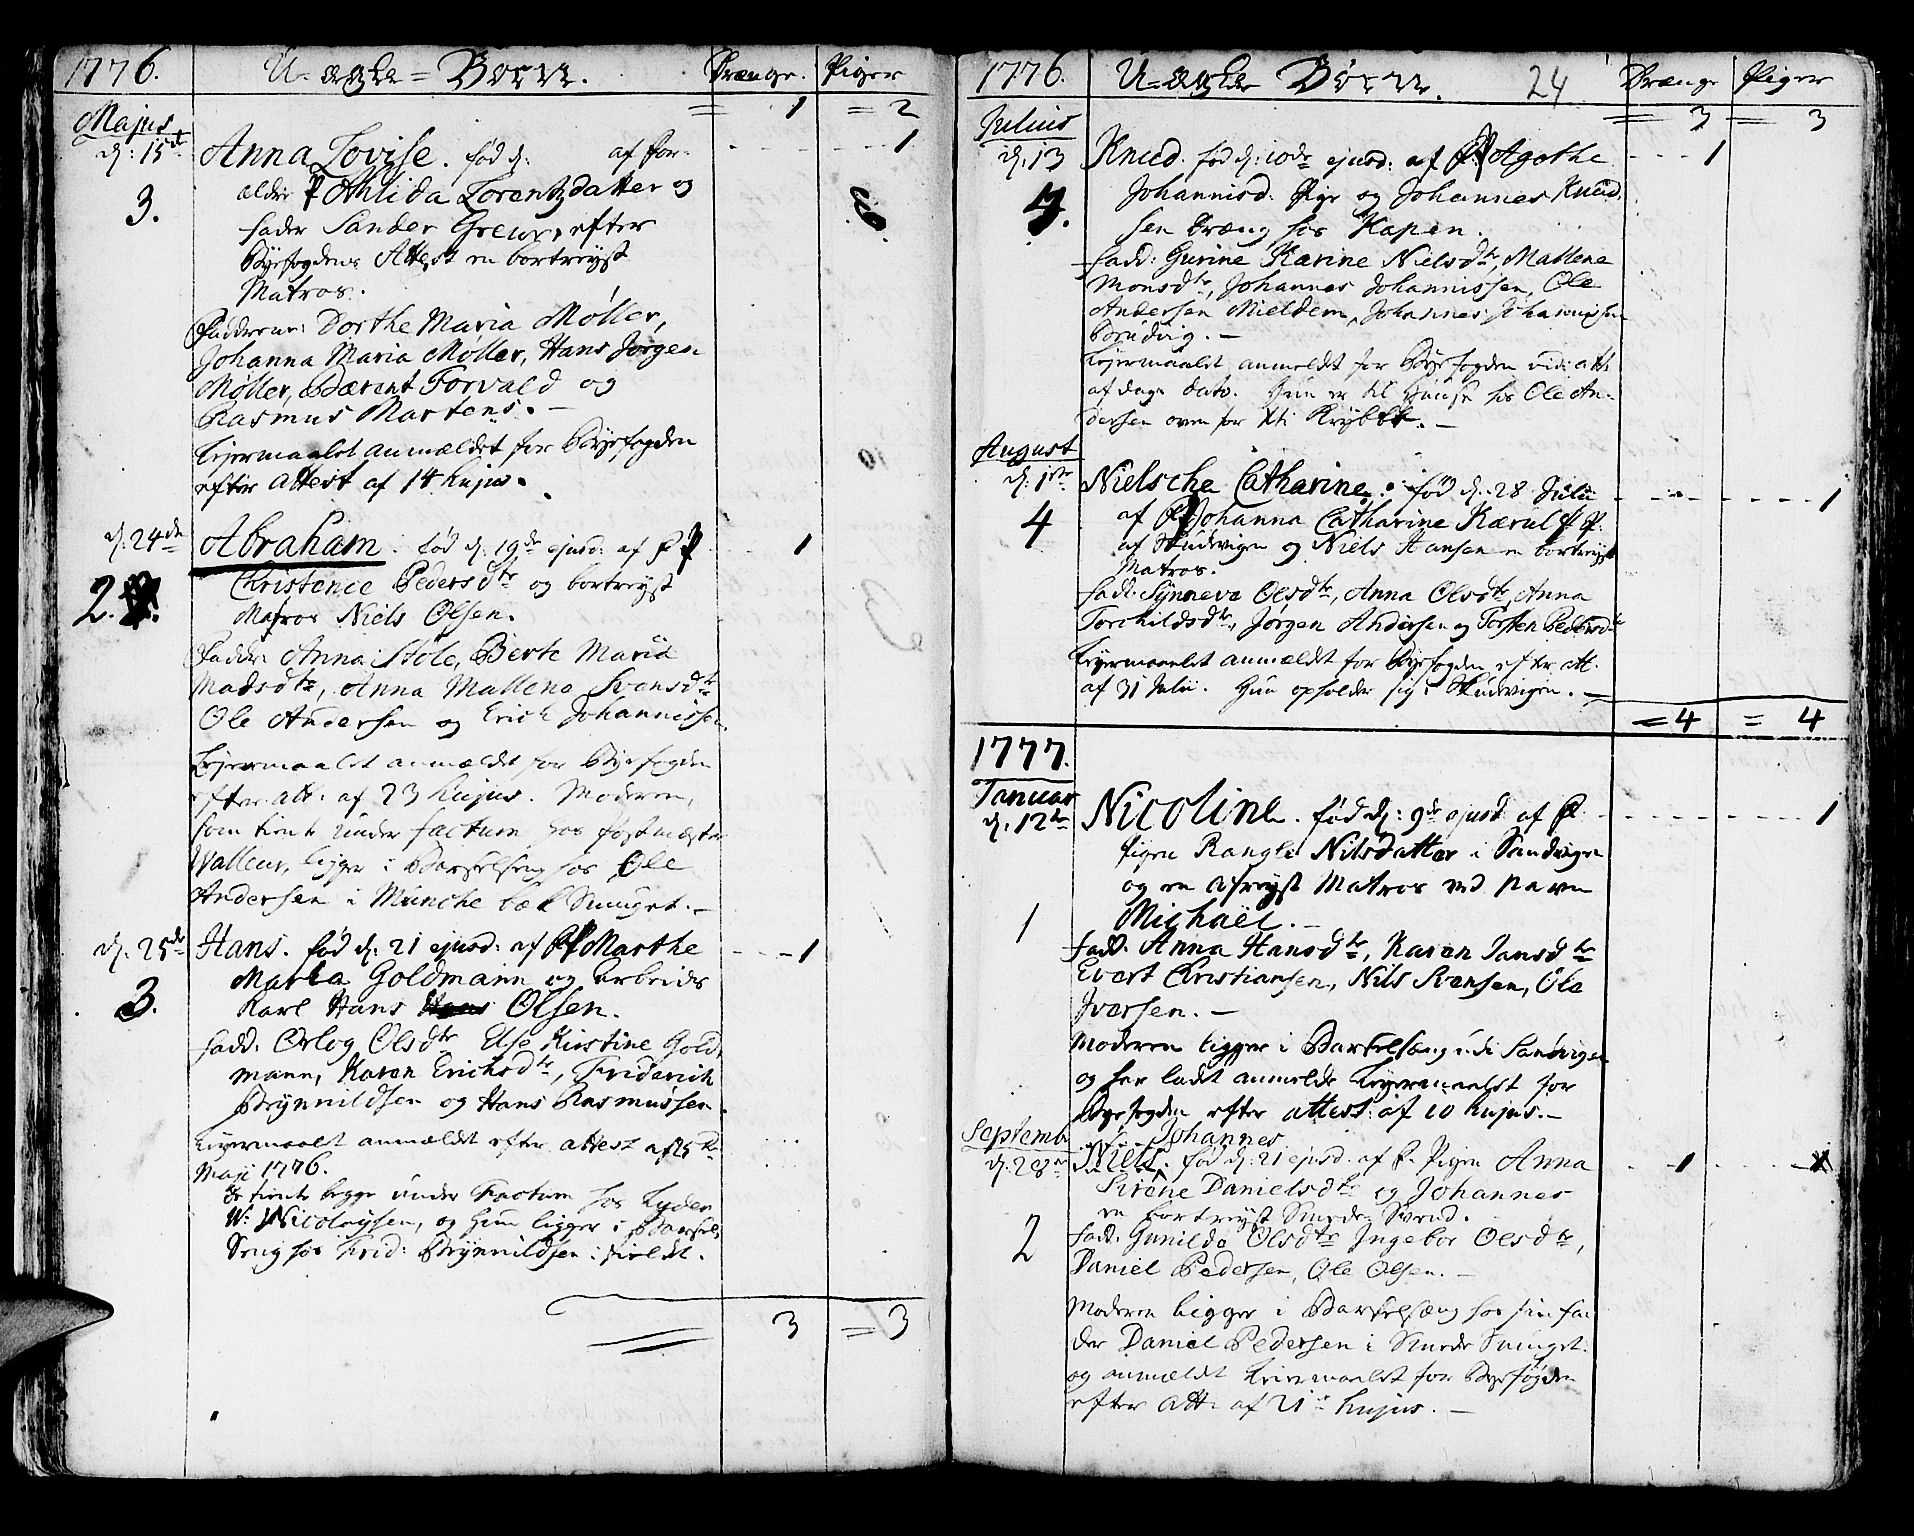 1776. U-ægte-Børn. Drænge. Piger
= 1 = 2
Majus
d: 15de Anna Lovise. fød d: af For- 1
3. ældre P Ahlida Lorentzdatter og
fader Sander Grewe, efter
Byefogdens Attest en bortreyst
Matros.
Fadderne: Dorthe Maria Møller,
Johanna Maria Møller, Hans Jørgen
Møller, Bærent Forvald og
Rasmus Martens. -
Leyermaalet anmældet for Byefogden
efter Attest af 14 hujus.
d: 24de Abraham. fød d: 19de ejusd: af P P 1
2. Christence Pedersdtr og bortreyst
Matros Niels Olsen.
Fadd: Anna Stole, Berte Maria
Madsdtr, Anna Mallene Svensdtr
Ole Andersen og Erich Johannissen.
Leyermaalet anmældet for Byefogden
efter att: af 23 hujus. Moderen,
som tiente under factum hos
Walleur, ligger i Barselseng hos Ole
Andersen i Münche bæk Smuget. -
d: 25de Hans. fød d: 21 ejusd: af P P Marthe 1
Maria Goldmann og Arbeids
3. Karl Hans Olsen.
Fadd: Orlog Olsdtr Else Kirstine Gold,
mann, Karen Erichsdtr, Friderich
Brynnildsen og Hans Rasmussen.
Leyermaalet anmældt efter attest af 25de
Maji 1776.
De tiente begge under Factum hos Lyder
W: Nicolaysen, og hun ligger i Barsels
Seng hos Frid: Brynnildsen i
3 = 3
1776. U-ægte Børn. 24 Drænge Piger
= 3 = 3
Julius
d: 13 Knud. fød d: 10de ejusd: af P. P Agothe 1
4. Johannisd: Pige og Johannes Knud,
sen Dræng hos Kapen.
Fadd: Gurine Karine Nielsdtr, Mallene
Monsdtr, Johannes Johannissen, Ole
Andersen Mieldem, Johannes Johannissen
Brudvig. -
Leyermaalet anmeldt for Byefogden vid: att.
af dags dato. Hun er til Huuse hos Ole An-
dersen oven for Krybbe. -
August
d: 1ste Nielsche Catharine. fød d: 28 Julii 1
4 af P. P Johanna Catharine Kærulf P.
af Skudvigen og Niels Hansen en bortreyst
Matros.
Fadd: Synneva Olsdtr, Anna Olsdtr, Anna
Torchildsdtr, Jørgen Andersen og Torsten Pedersen
Leyermaalet anmældet for Byefogden efter att.
af 31 Julii. Hun opholder sig i Skudwigen. -
= 4 = 4
1777.
Januar
d: 12te Nicoline. fød d: 9de ejusd: af P. 1
Pigen Rangle Nilsdatter i Sandvigen
og en afreyst Matros ved navn
1 Michaël. -
Fadd: Anna Hansdtr, Karen Jansdtr
Evert Christiansen, Nils Svensen, Ole
Iversen. -
Moderen ligger i Barselsæng ude i Sandvigen
og har ladet anmelde Leyermaalet for
Byefogden efter attest: af 10 hujus. -
Septembr Johannes
d: 28de Niels. fød d: 21 ejusd: af P. Pigen Anna 1
Sirene Danielsdtr og Johannes
en bortreyst Smede Svend.
2 Fadd: Gunilde Olsdtr Ingebor Olsdtr,
Daniel Pedersen, Ole Olsen. -
Moderen ligger i Barselsæng hos sin fa-
der Daniel Pedersen i Smede Smuget.
og anmældt Leiermaalet for Byefogden
efter att: af 21de hujus. -